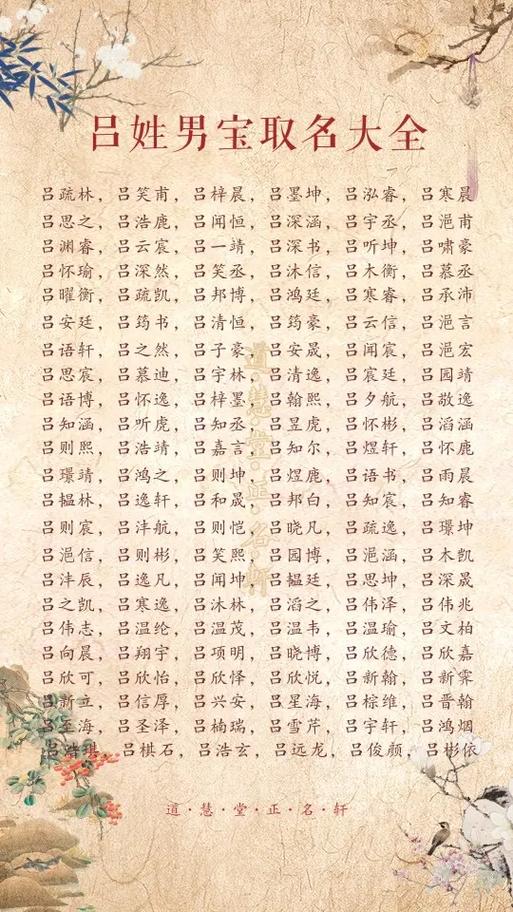 吕姓男宝取名大全
吕疏林，吕笑甫，吕梓晨，吕墨坤，吕泓睿，吕寒晨
吕思之，吕浩鹿，吕闻恒，吕深涵，吕宇丞，吕浥甫
吕渊睿，吕云宸，吕一靖，吕深书，吕听坤，吕啸豪
吕怀瑜，吕深然，吕笑丞，吕沐信，吕木衡，吕慕丞
吕曜衡，吕疏凯，吕邦博，吕鸿廷，吕寒睿，吕承沛
吕安廷，吕筠书，吕清恒，吕筠豪，吕云信，吕浥言
吕语轩，吕之然，吕子豪，吕安晟，吕闻宸，吕浥宏
吕思宸，吕慕迪，吕宇林，吕清逸，吕宸廷，吕园靖
吕语博，吕怀逸，吕梓墨，吕翰熙，吕夕航，吕敬逸
吕知涵，吕听虎，吕知丞，吕昱虎，吕怀彬，吕滔涵
吕则熙，吕浩靖，吕嘉言，吕知尔，吕煜轩，吕怀鹿
吕璟靖，吕鸿之，吕则坤，吕煜鹿，吕语书，吕雨晨
吕韫林，吕逸轩，吕和晟，吕邦白，吕知宸，吕知睿
吕则宸，吕沣航，吕则恺，吕晓凡，吕疏逸，吕璟坤
吕浥信，吕则彬，吕笑熙，吕园博，吕浥涵，吕木凯
吕沣辰，吕逸凡，吕闻坤，吕韫廷，吕思坤，吕深晟
吕之凯，吕寒逸，吕沐林，吕滔之，吕伟泽，吕伟兆
吕伟志，吕温纶，吕温茂，吕温韦，吕温瑜，吕文柏
吕向晨，吕翔宇，吕项明，吕晓博，吕欣德，吕欣嘉
吕欣可，吕欣怡，吕欣怿，吕欣悦，吕新翰，吕新霁
吕新立，吕信厚，吕兴安，吕星海，吕棕维，吕晋翰
吕至海，吕圣泽，吕楠瑞，吕雪芹，吕宇轩，吕鸿烟
吕浩琪，吕棋石，吕浩玄，吕远龙，吕俊颜，吕彬依
道·慧·堂·正·名·轩
道·慧·堂·正·名·轩